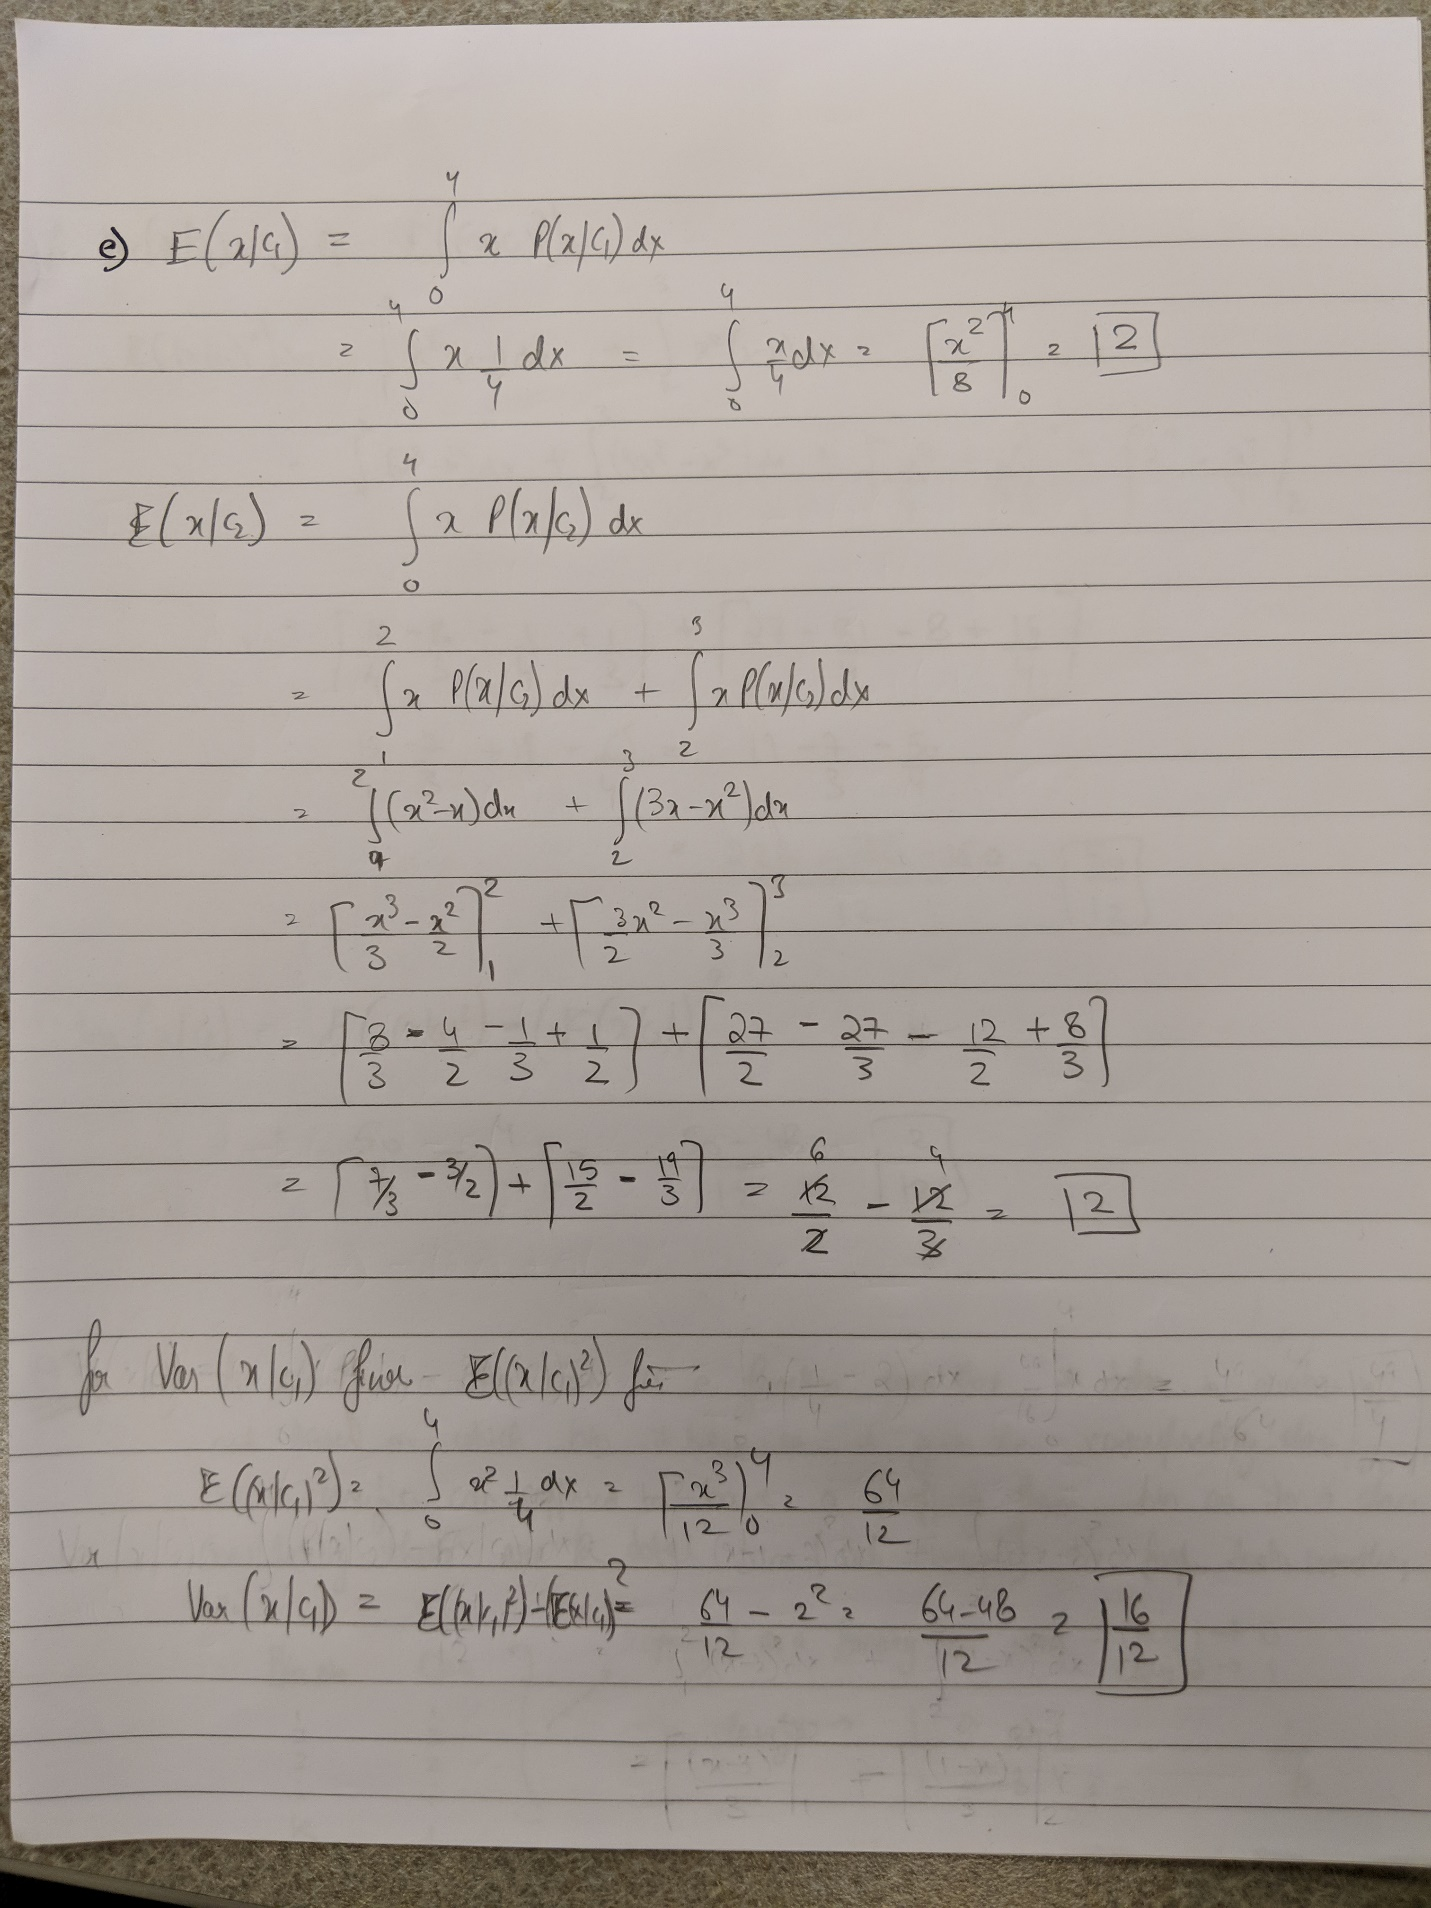 e) E(x/C₁) = ∫₀⁴ x P(x/C₁) dx
= ∫₀⁴ x 1/4 dx = ∫₀⁴ x/4 dx = [x²/8]₀⁴ = 2
E(x/C₂) = ∫₀⁴ x P(x/C₂) dx
= ∫₁² x P(x/C₂) dx + ∫₂³ x P(x/C₂) dx
= ∫₁² (x²-x) dx + ∫₂³ (3x-x²) dx
= [x³/3 - x²/2]₁² + [3x²/2 - x³/3]₂³
= [8/3 - 4/2 - 1/3 + 1/2] + [27/2 - 27/3 - 12/2 + 8/3]
= [7/3 - 3/2] + [15/2 - 19/3] = 12/2 6 - 12/3 4 = 2
for Var(x/C₁) E((x/C₁)²)
E((x/C₁)²) = ∫₀⁴ x² 1/4 dx = [x³/12]₀⁴ = 64/12
Var(x/C₁) = E((x/C₁)²) - (E(x/C₁))² = 64/12 - 2² = (64-48)/12 = 16/12